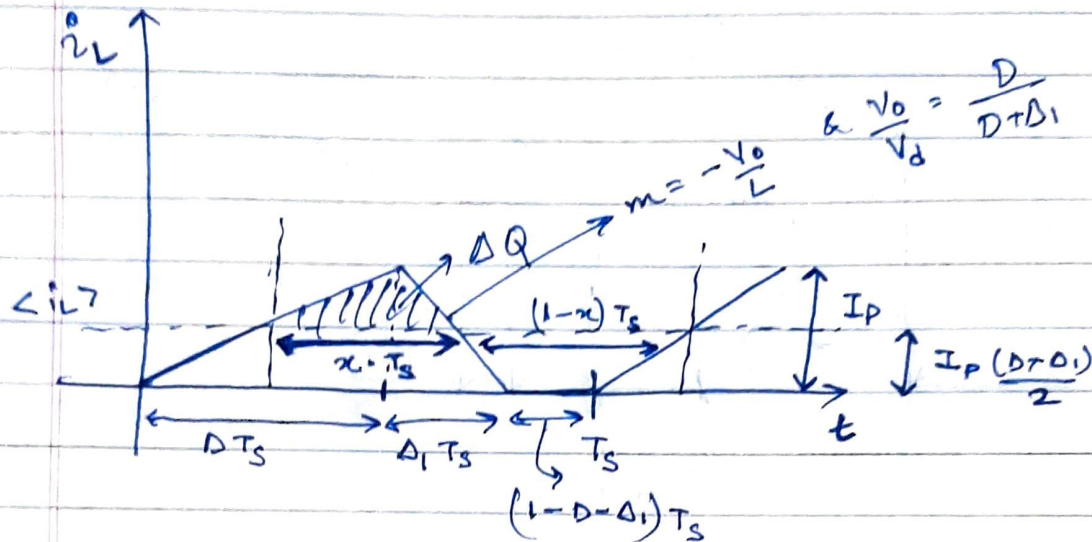 i_L
& V_o/V_d = D/(D+Δ_1)
m = -V_o/L
ΔQ
<i_L>
(1-x) T_s
I_p
x · T_s
I_p (D+Δ_1)/2
t
D T_s
Δ_1 T_s
T_s
(1-D-Δ_1) T_s